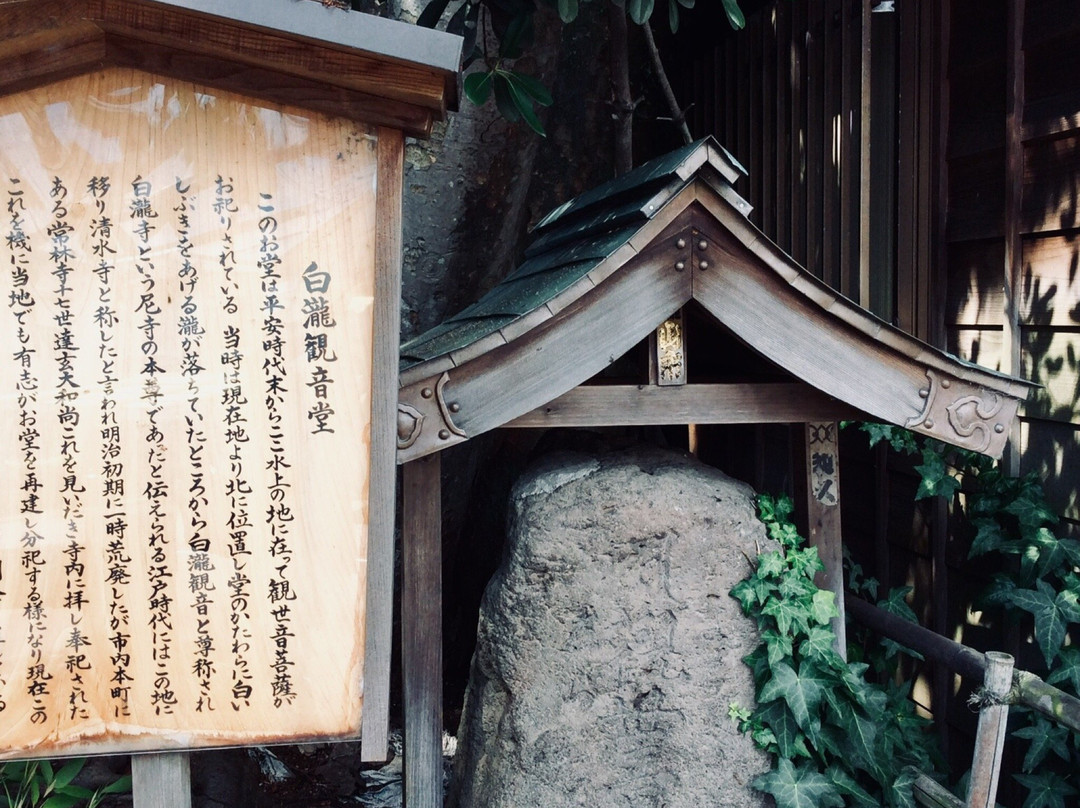 白瀧観音堂
このお堂は平安時代末からここ水上の地に在って観世音菩薩が
お祀りされている 当時は現在地より北に位置し堂のかたわらに白い
しぶきをあげる瀧が落ちていたところから白瀧観音と尊称され
白瀧寺という尼寺の本尊であったと伝えられる江戸時代にはこの地に
移り清水寺と称したと言われ明治初期に一時荒廃したが市内本町に
ある常林寺十七世達玄大和尚これを見いだき寺内に拝し奉祀された
これを機に当地でも有志がお堂を再建し分祀する様になり現在この